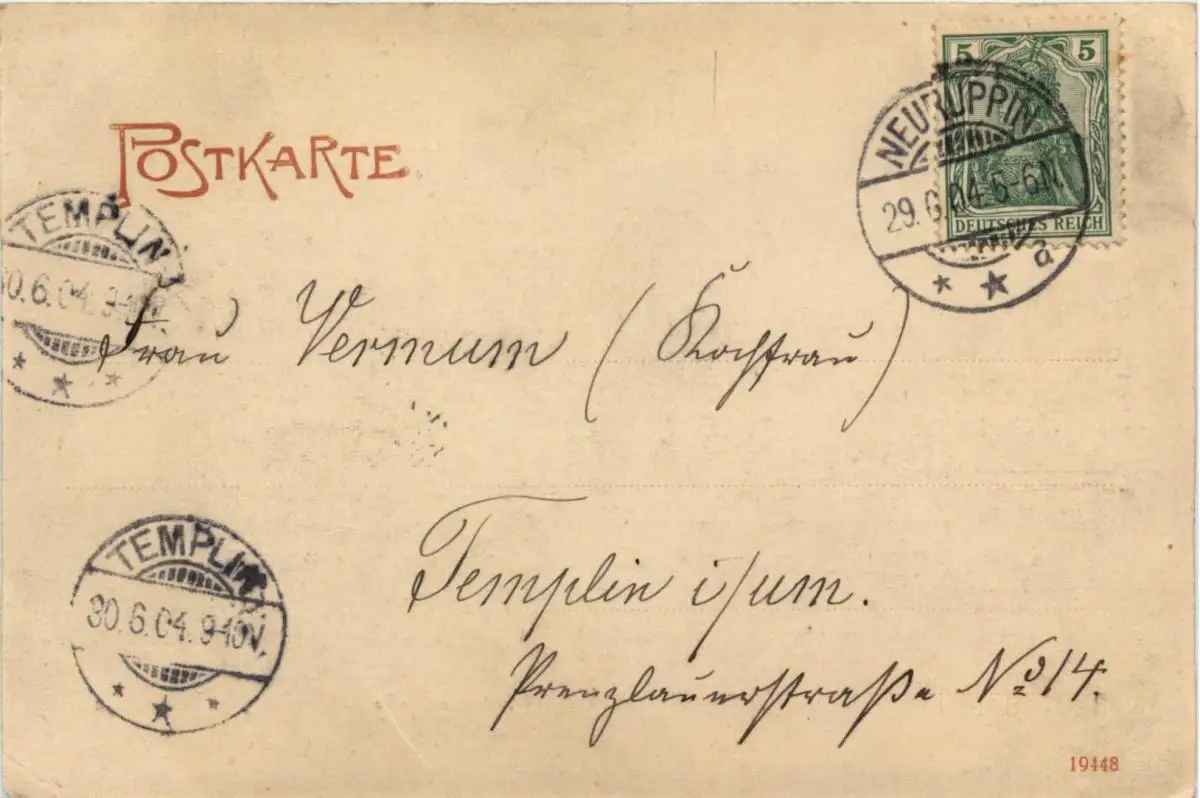 POSTKARTE
5 5
DEUTSCHES REICH
NEURUPPIN
29.6.04.5-6N.
a
TEMPLIN
30.6.04.9-10V.
Frau Vermum (Kochfrau)
Templin i/um.
Prenzlauerstraße No 14.
TEMPLIN
30.6.04.9-10V.
19448